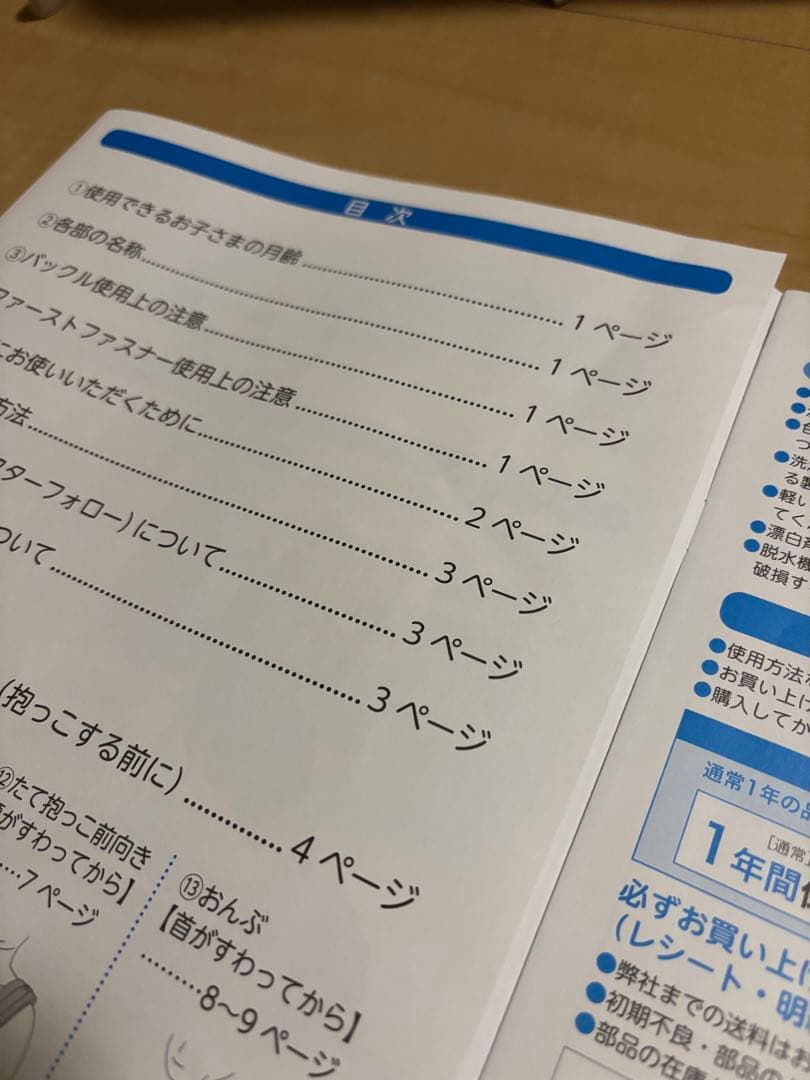 目 次
①使用できるお子さまの月齢 1 ページ
②各部の名称 1 ページ
③バックル使用上の注意 1 ページ
ファーストファスナー使用上の注意 1 ページ
お使いいただくために 2 ページ
方法 3 ページ
ターフォロー)について 3 ページ
ついて 3 ページ
(抱っこする前に) 4 ページ
⑫たて抱っこ前向き
がすわってから】
7 ページ
⑬おんぶ
【首がすわってから】
8〜9 ページ
る製
●軽い
てく
●漂白剤
●脱水機
破損す
●使用方法
●お買い上げ
●購入してか
通常1年の品
[通常
1年間
必ずお買い上げ
(レシート・明
●弊社までの送料はお
●初期不良・部品の
●部品の在庫